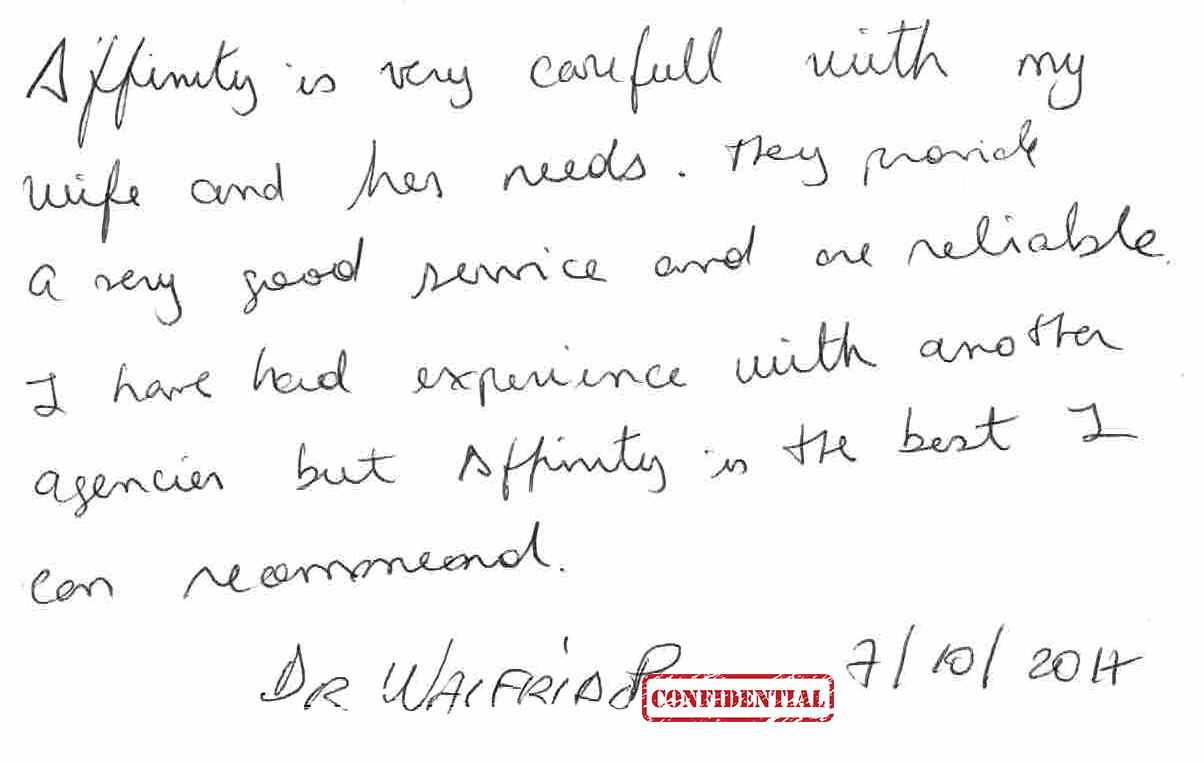 Affinity is very carefull with my
wife and her needs. They provide
a very good service and are reliable.
I have had experience with another
agencies but Affinity is the best I
can recommeand.
DR WALFRIDO P 7/10/2017
CONFIDENTIAL